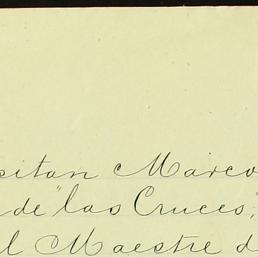 pitan Marco
de "las Cruces,"
l Maestre d